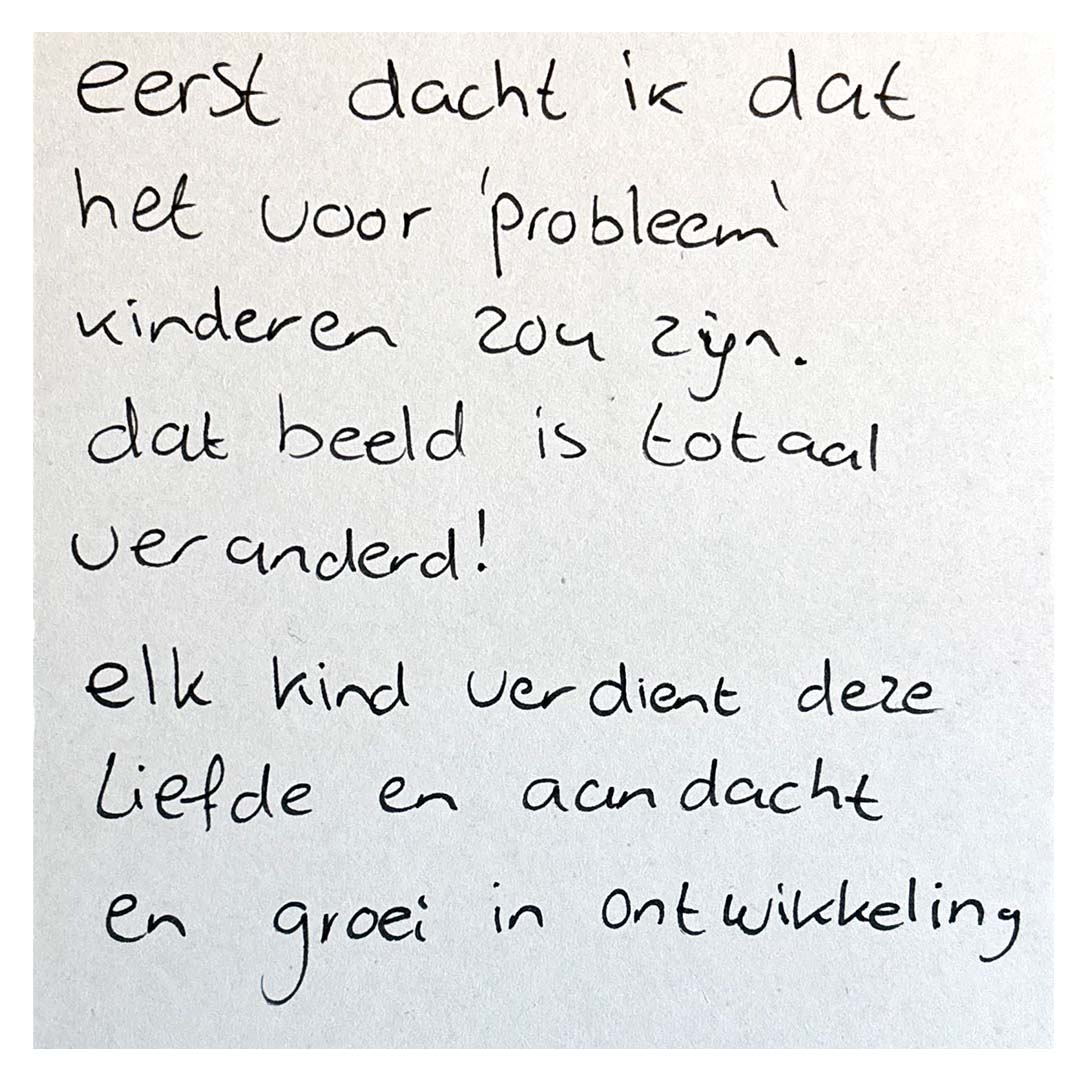 eerst dacht ik dat
het voor 'probleem'
kinderen zou zijn.
dat beeld is totaal
veranderd!
elk kind verdient deze
liefde en aandacht
en groei in ontwikkeling